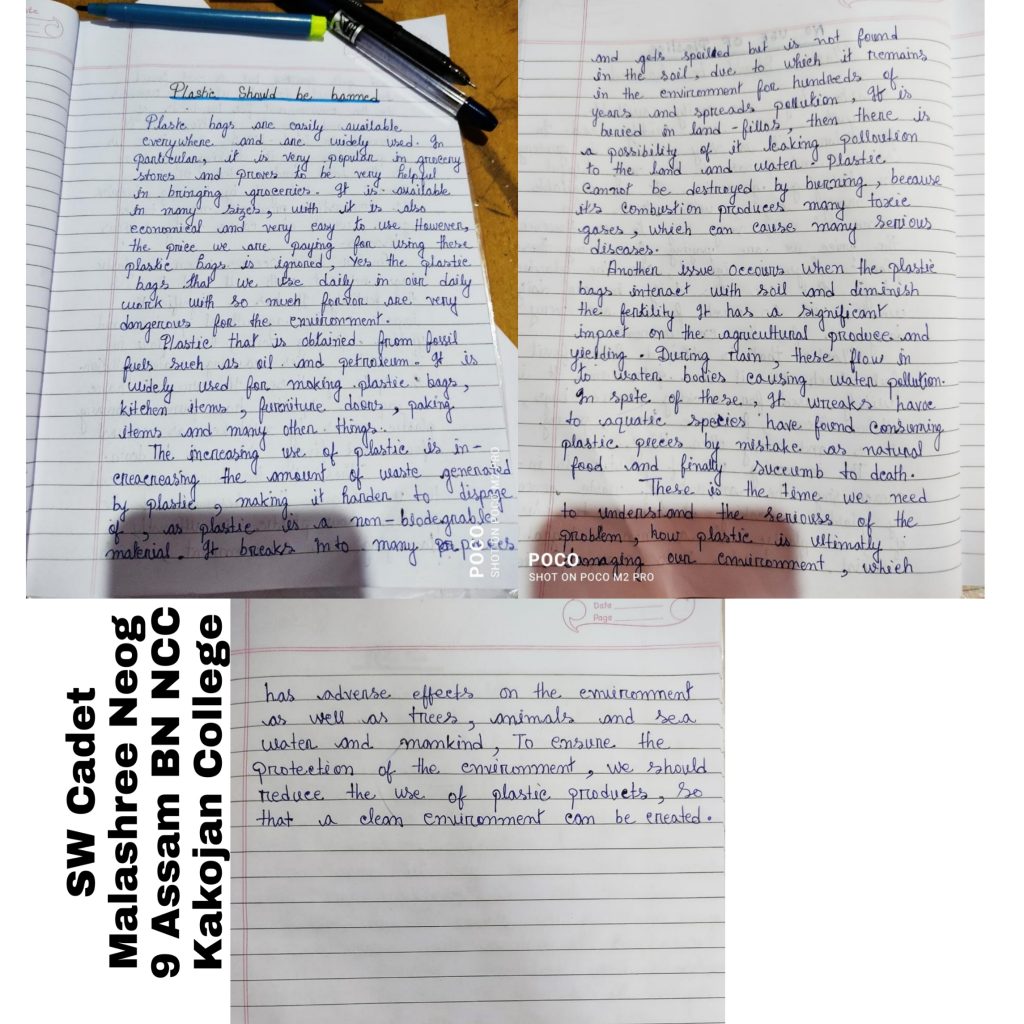 Plastic Should be banned
Plastc bags are easily available
everywhere and are widely used. In
particular, it is very popular in grocery
stores and proves to be very helpful
in bringing groceries. It is available
in many sizes, with it is also
economical and very easy to use However,
the price we are paying for using these
plastic Bags is ignored, Yes the plastic
bags that we use daily in our daily
work with so much forvor are very
dangerous for the environment.
Plastic that is obtained from fossil
fuels such as oil and petroleum. It is
widely used for making plastic bags,
kitchen items, furniture doors, paking
items and many other things.
The increasing use of plastic is in-
creacreasing the amount of waste generated
by plastic, making it harder to dispage
of, as plastic is a non-biodegrable
material. It breaks into many pieces
POCO
SHOT ON POCO M2 PRO
and gets spoiled but is not found
in the soil, due to which it remains
in the environment for hundreds of
years and spreads pollution, It is
buried in land-fillos, then there is
a possibility of it leaking polloution
to the land and water. plastic
cannot be destroyed by burning, because
it's combustion produces many toxic
gases, which can cause many serious
diseases.
Another issue occours when the plastic
bags interact with soil and diminish
the fertility It has a significant
impact on the agricultural produce and
yielding. During rain, these flow in
to water bodies causing water pollution.
In spite of these, It wreaks havoc
to aquatic species have found consuming
plastic preces by mistake as natural
food and finally succumb to death.
There is the time we need
to understand the seriouss of the
problem, how plastic is ultimatly
damaging our environment, which
POCO
SHOT ON POCO M2 PRO
Date
Page
has adverse effects on the environment
as well as trees, animals and sea
water and mankind, To ensure the
protection of the environment, we should
reduce the use of plastic products, so
that a clean environment can be created.
SW Cadet
Malashree Neog
9 Assam BN NCC
Kakojan College